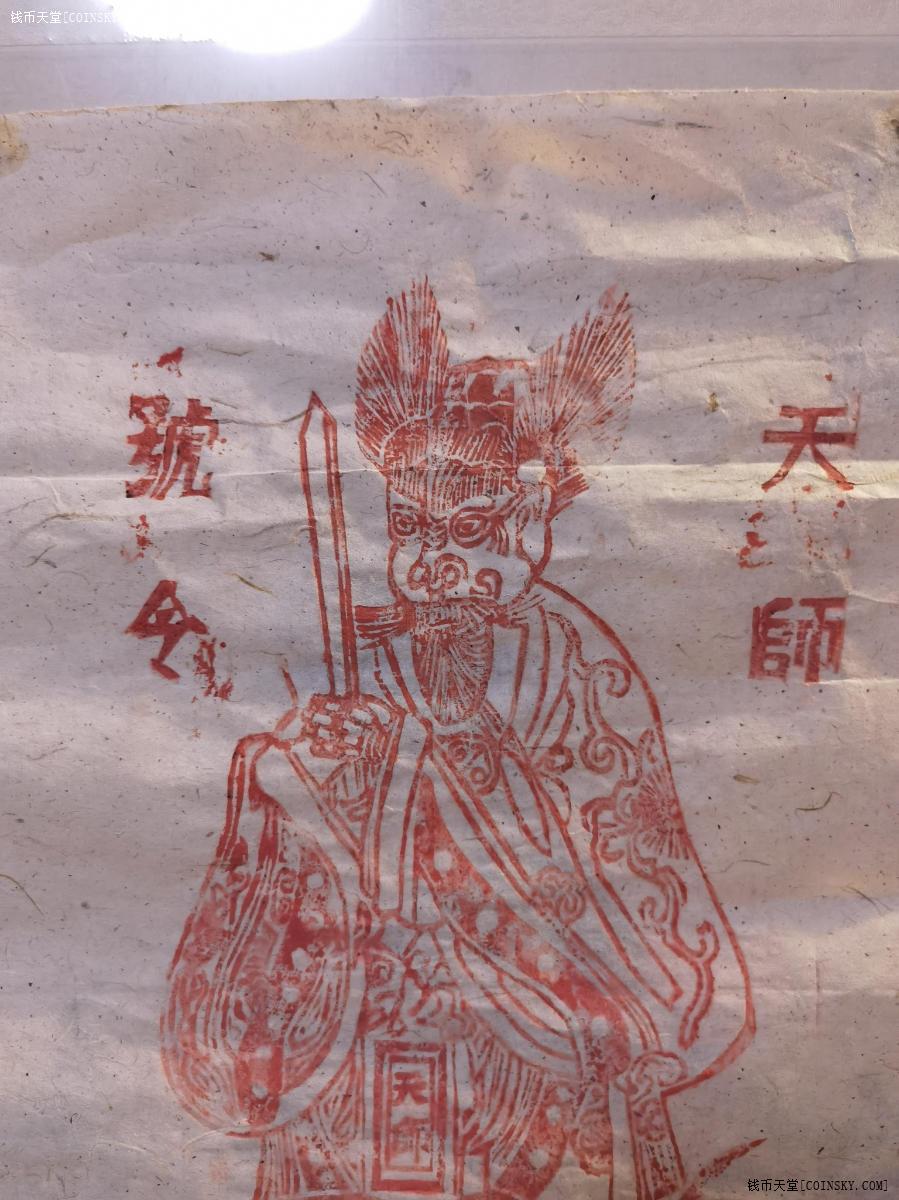 钱币天堂[COINSKY.COM]
天師
號令
天師
钱币天堂[COINSKY.COM]